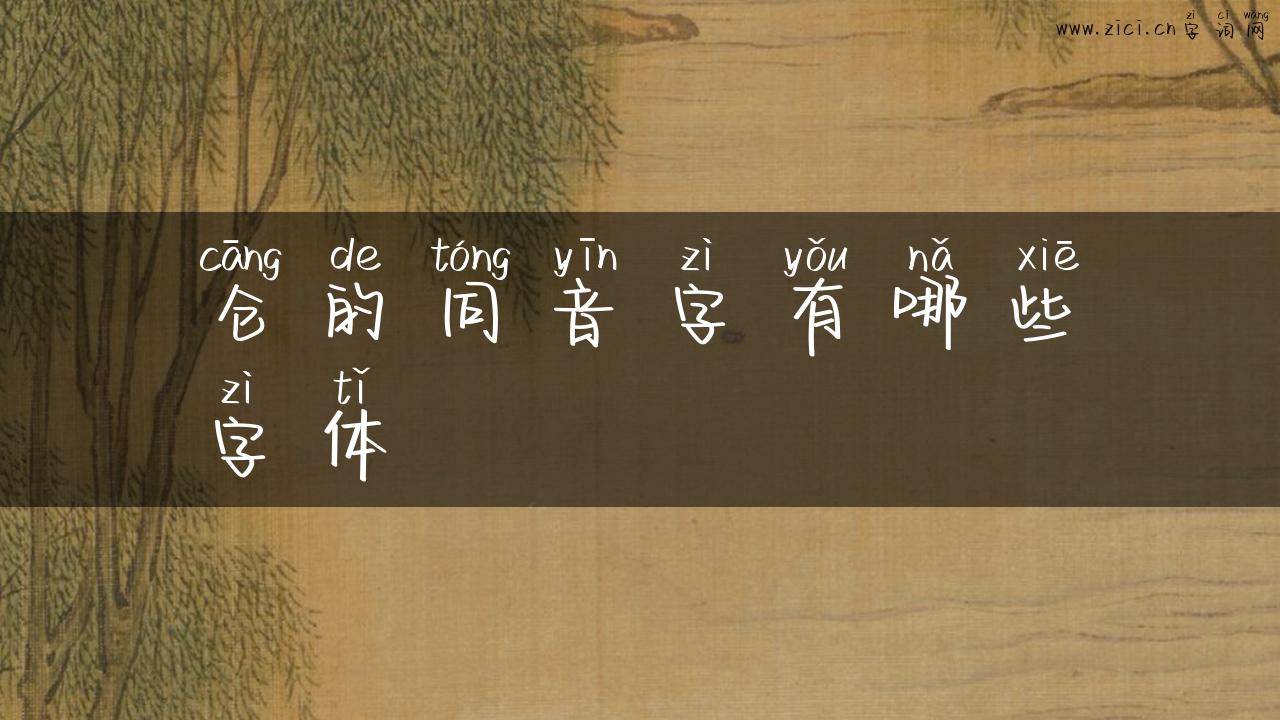 zì cí wǎng
www.zici.cn 字词网
cāng de tóng yīn zì yǒu nǎ xiē
仓的同音字有哪些
zì tǐ
字体